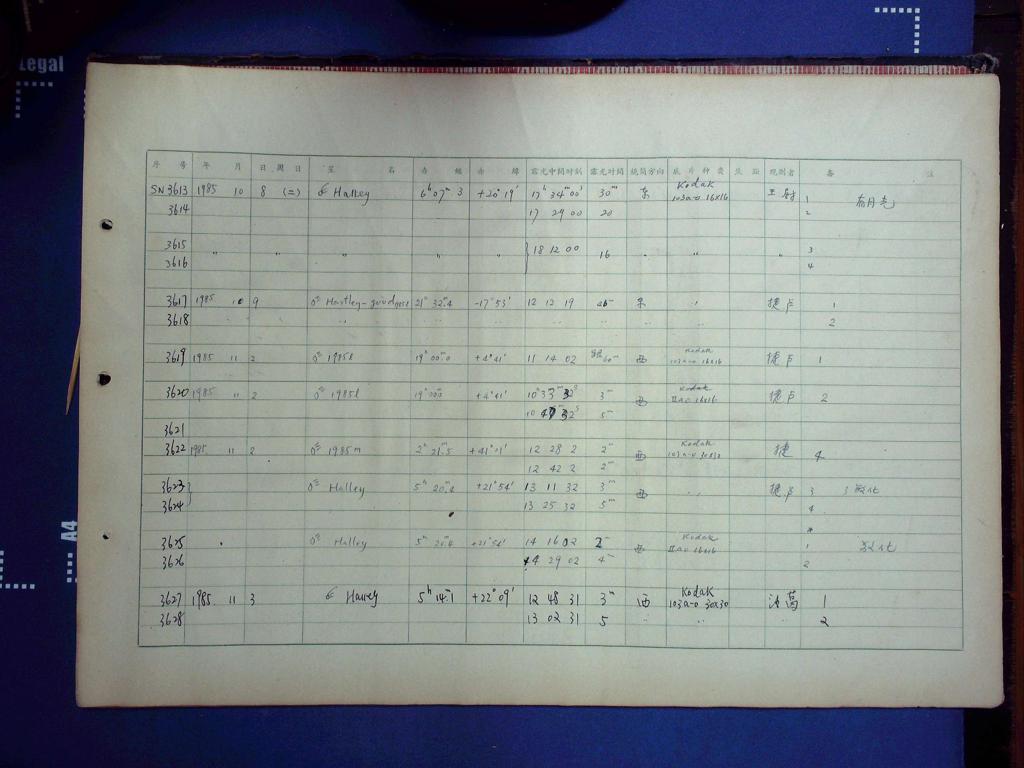 Legal
A4
序 号 年 月 日 周 日 星 名 赤 经 赤 纬 露光中间时刻 露光时间 镜筒方向 底 片 种 类 观测者 备 注
SN 3613 1985 10 8 (二) Halley 6h 07m 3 +20° 19' 17h 34m 00s 30m 东 Kodak 103a-o 16x16 1 有月光
3614 17 29 00 20 2
3615 " " " " " 18 12 00 16 " " " 3
3616 4
3617 1985 10 9 Hartley- 21h 32m.4 -17° 53' 12 12 19 东 " 捷 卢 1
3618 2
3619 1985 11 2 1985l 19h 00m.0 +4° 41' 11 14 02 60m 西 Kodak 103a-o 16x16 捷 卢 1
3620 1985 11 2 1985l 19h 00m.0 +4° 41' 10h 33m 32s 3m 西 Kodak IIaO 16x16 捷 卢 2
10 47 32s 5m
3621
3622 1985 11 2 1985m 2h 21m.5 +41° 01' 12 28 2 2m 西 Kodak 103a-o 捷 4
12 42 2 2m
3623 Halley 5h 20m.4 +21° 54' 13 11 32 3m 西 " 捷 卢 3
3624 13 25 32 5m 4
3625 Halley 5h 20m.4 +21° 54' 14 16 02 2m 西 Kodak IIaO 16x16 1
3626 14 29 02 4m 2
3627 1985 11 3 Halley 5h 14m.1 +22° 09' 12 48 31 3m 西 Kodak 103a-o 30x30 1
3628 13 02 31 5 " " " 2